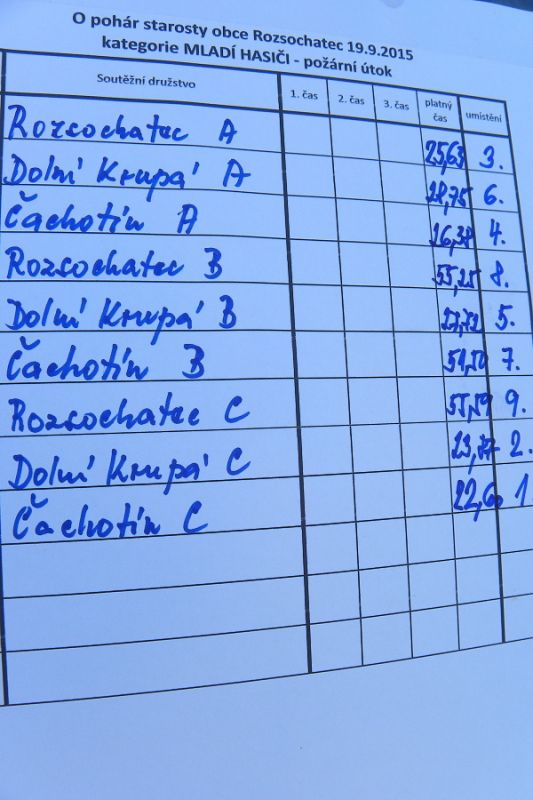 O pohár starosty obce Rozsochatec 19.9.2015
kategorie MLADÍ HASIČI - požární útok
Soutěžní družstvo 1. čas 2. čas 3. čas platný čas umístění
Rozsochatec A 25,63 3.
Dolní Krupá A 28,75 6.
Čachotín A 26,38 4.
Rozsochatec B 55,25 8.
Dolní Krupá B 27,72 5.
Čachotín B 51,50 7.
Rozsochatec C 55,59 9.
Dolní Krupá C 2.
Čachotín C 1.